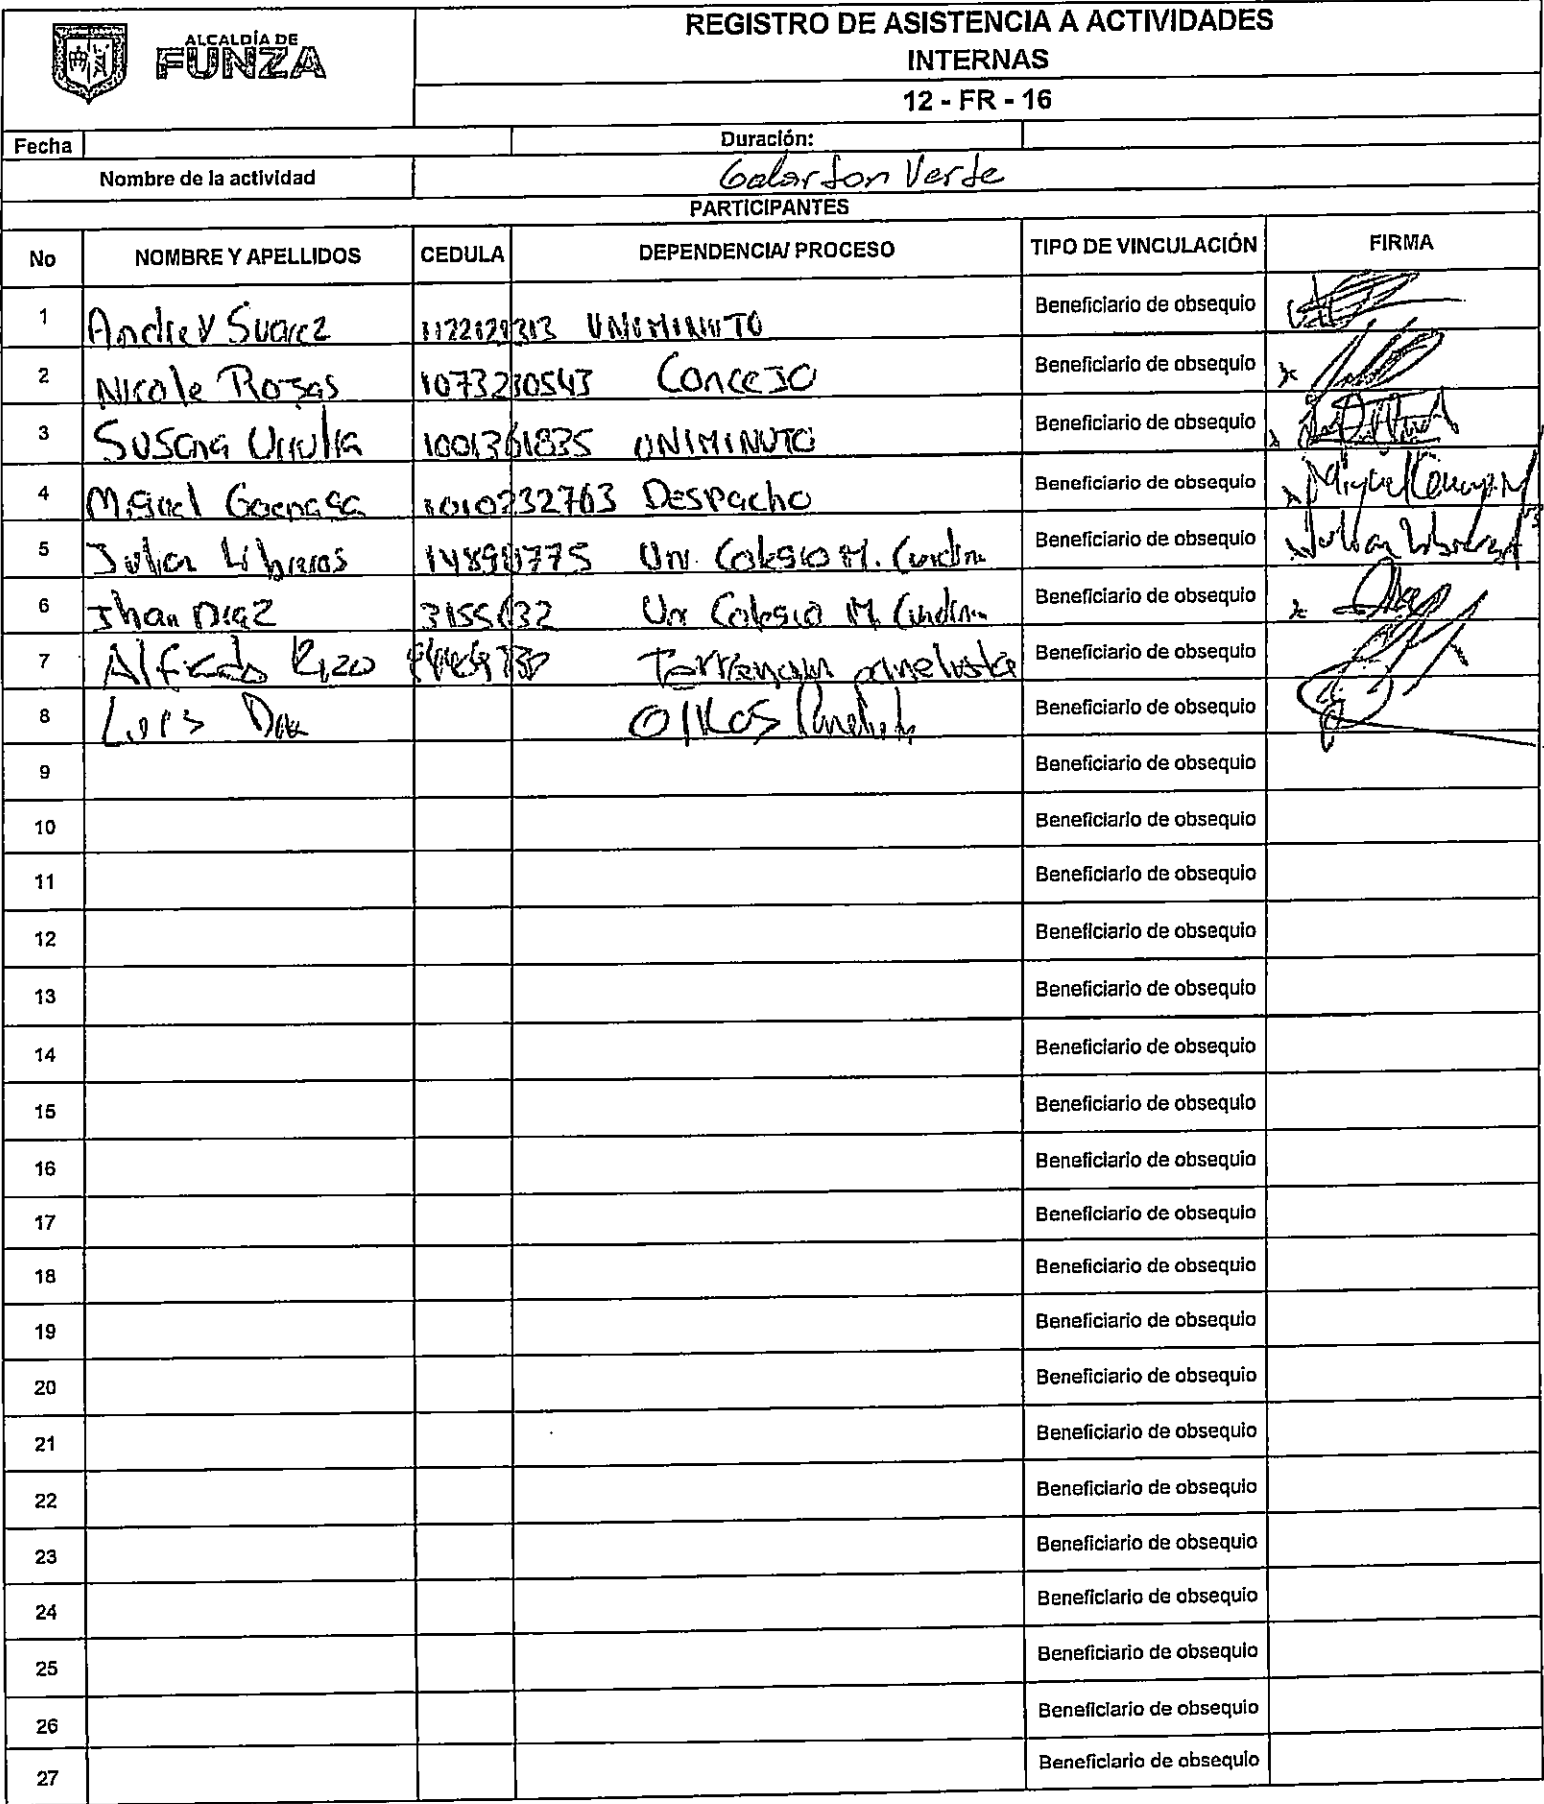 ALCALDÍA DE
FUNZA
REGISTRO DE ASISTENCIA A ACTIVIDADES
INTERNAS
12 - FR - 16
Fecha Duración:
Nombre de la actividad Galardon Verde
PARTICIPANTES
No NOMBRE Y APELLIDOS CEDULA DEPENDENCIA/ PROCESO TIPO DE VINCULACIÓN FIRMA
1 Andrey Suarez UNIMINUTO Beneficiario de obsequio
2 Nicole Rojas 1073230543 Concejo Beneficiario de obsequio
3 Susana Urrulia 1001361835 UNIMINUTO Beneficiario de obsequio
4 Miguel 1010232763 Despacho Beneficiario de obsequio Miguel
5 Julian Libreros Un. Colegio M. Cundin Beneficiario de obsequio Julian
6 Jhan Diaz Un Colegio M. Cundin Beneficiario de obsequio
7 Alfredo Rizo Beneficiario de obsequio
8 Luis OIKOS Beneficiario de obsequio
9 Beneficiario de obsequio
10 Beneficiario de obsequio
11 Beneficiario de obsequio
12 Beneficiario de obsequio
13 Beneficiario de obsequio
14 Beneficiario de obsequio
15 Beneficiario de obsequio
16 Beneficiario de obsequio
17 Beneficiario de obsequio
18 Beneficiario de obsequio
19 Beneficiario de obsequio
20 Beneficiario de obsequio
21 Beneficiario de obsequio
22 Beneficiario de obsequio
23 Beneficiario de obsequio
24 Beneficiario de obsequio
25 Beneficiario de obsequio
26 Beneficiario de obsequio
27 Beneficiario de obsequio